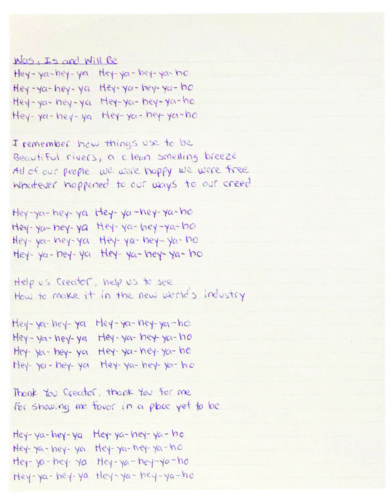 Was, Is and Will Be
Hey-ya-hey-ya Hey-ya-hey-ya-ho
Hey-ya-hey-ya Hey-ya-hey-ya-ho
Hey-ya-hey-ya Hey-ya-hey-ya-ho
Hey-ya-hey-ya Hey-ya-hey-ya-ho
I remember how things use to be
Beautiful rivers, a clean smelling breeze
All of our people we were happy we were free
Whatever happened to our ways to our creed
Hey-ya-hey-ya Hey-ya-hey-ya-ho
Hey-ya-hey-ya Hey-ya-hey-ya-ho
Hey-ya-hey-ya Hey-ya-hey-ya-ho
Hey-ya-hey-ya Hey-ya-hey-ya-ho
Help us Creator, help us to see
How to make it in the new world's industry
Hey-ya-hey-ya Hey-ya-hey-ya-ho
Hey-ya-hey-ya Hey-ya-hey-ya-ho
Hey-ya-hey-ya Hey-ya-hey-ya-ho
Hey-ya-hey-ya Hey-ya-hey-ya-ho
Thank You Creator, thank You for me
For showing me favor in a place yet to be
Hey-ya-hey-ya Hey-ya-hey-ya-ho
Hey-ya-hey-ya Hey-ya-hey-ya-ho
Hey-ya-hey-ya Hey-ya-hey-ya-ho
Hey-ya-hey-ya Hey-ya-hey-ya-ho